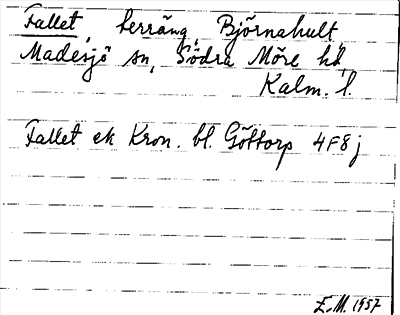 Fallet, terräng, Björnahult
Madesjö sn, Södra Möre hd,
Kalm. l.
Fallet ek Kron. bl. Göttorp 4F8j
E.M. 1957